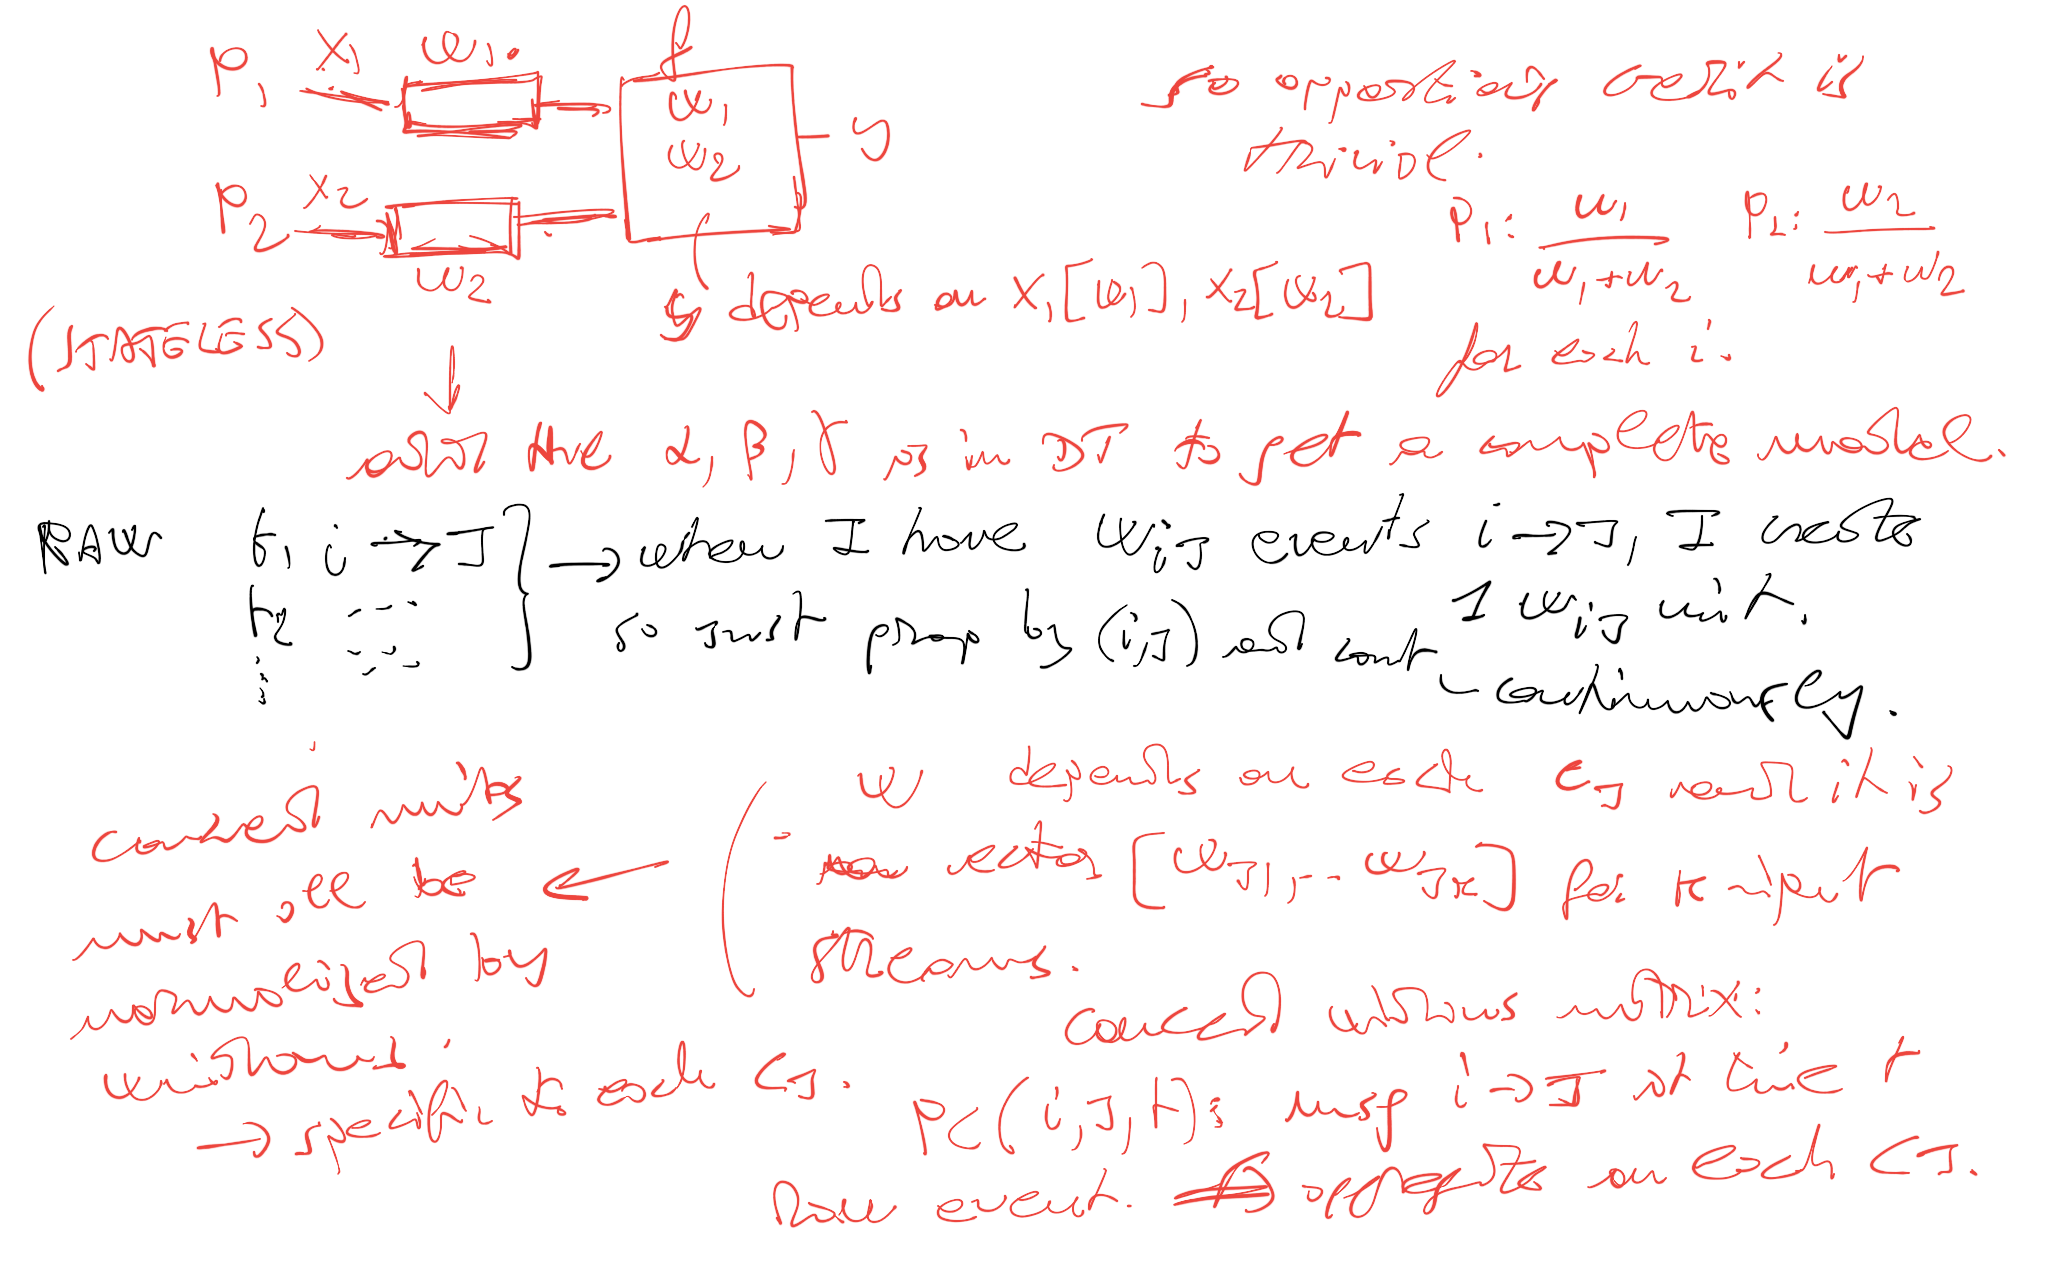 P1 x1 w1. f
w1
w2
y
P2 x2
w2
(STATELESS)
y depends on x1[w1], x2[w2]
so apportioning credit is
trivial.
P1: w1/(w1+w2) P2: w2/(w1+w2)
for each i.
add the α, β, γ as in DT to get a complete model.
RAW t1 i → J } → when I have wiJ events i → J, I create
1 wiJ unit.
t2 --- so just group by (i,J) and count
continuously.
w depends on each cJ and it is
vector [wJ1, .. wJK] for K input
streams.
causal units
must all be ←
normalized by
windows.
→ specific to each cJ.
windows matrix:
PC(i,J,t): msg i → J at time t
Raw event. aggregate on each CJ.